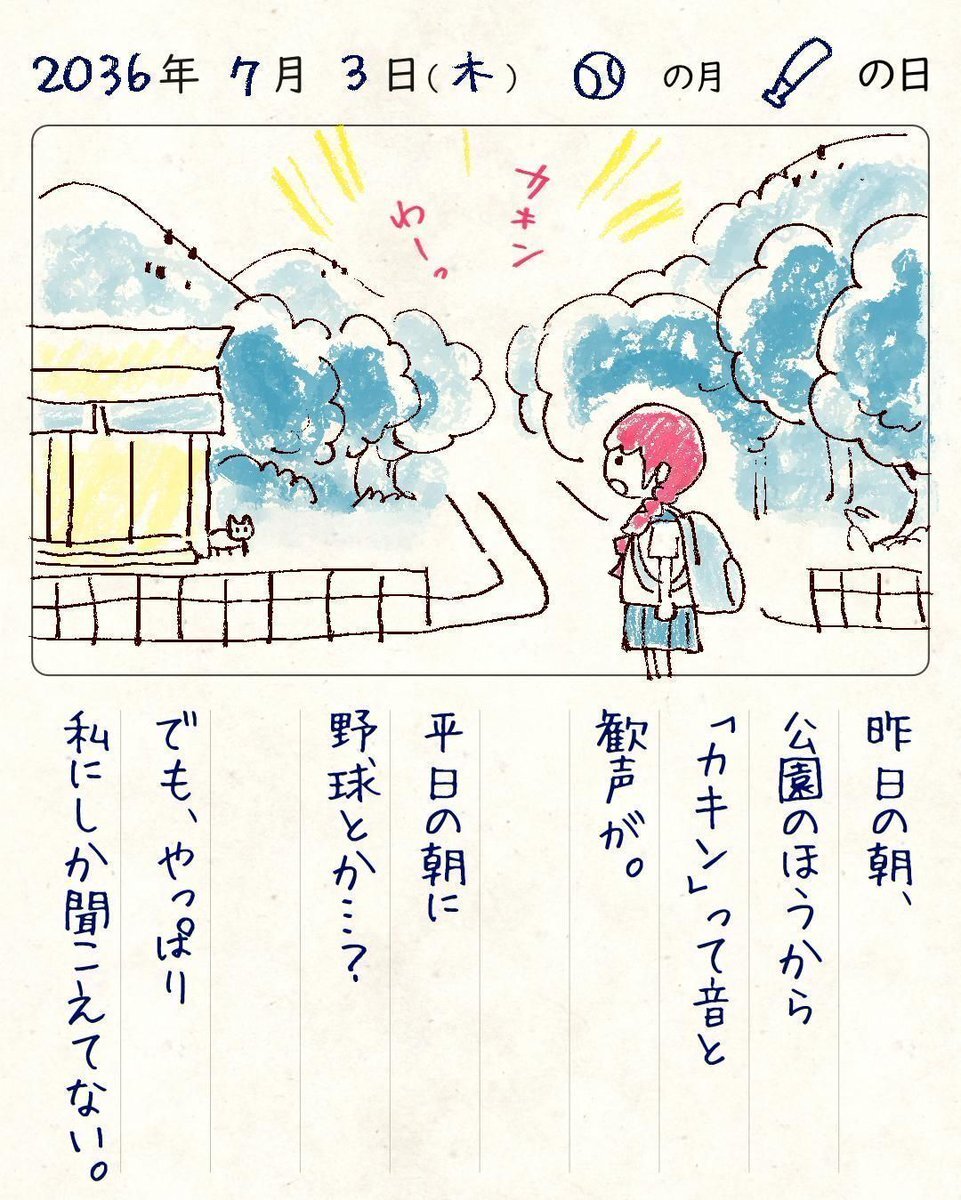 2036年 7月 3日（木） の月 の日
カキン
わーっ
昨日の朝、
公園のほうから
「カキン」って音と
歓声が。
平日の朝に
野球とか…？
でも、やっぱり
私にしか聞こえてない。